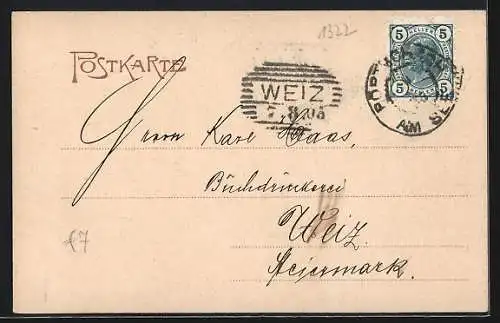 1322
POSTKARTE
5 HELLER 5
5 5
WEIZ
7 8 03
AM SEE
Herrn Karl Haas,
Buchdruckerei
Weiz.
Steiermark.
€7